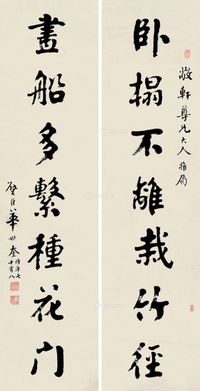 敬軒尊兄大人雅屬
卧榻不離栽竹徑
畫船多繫種花门
華世奎時年七十有八